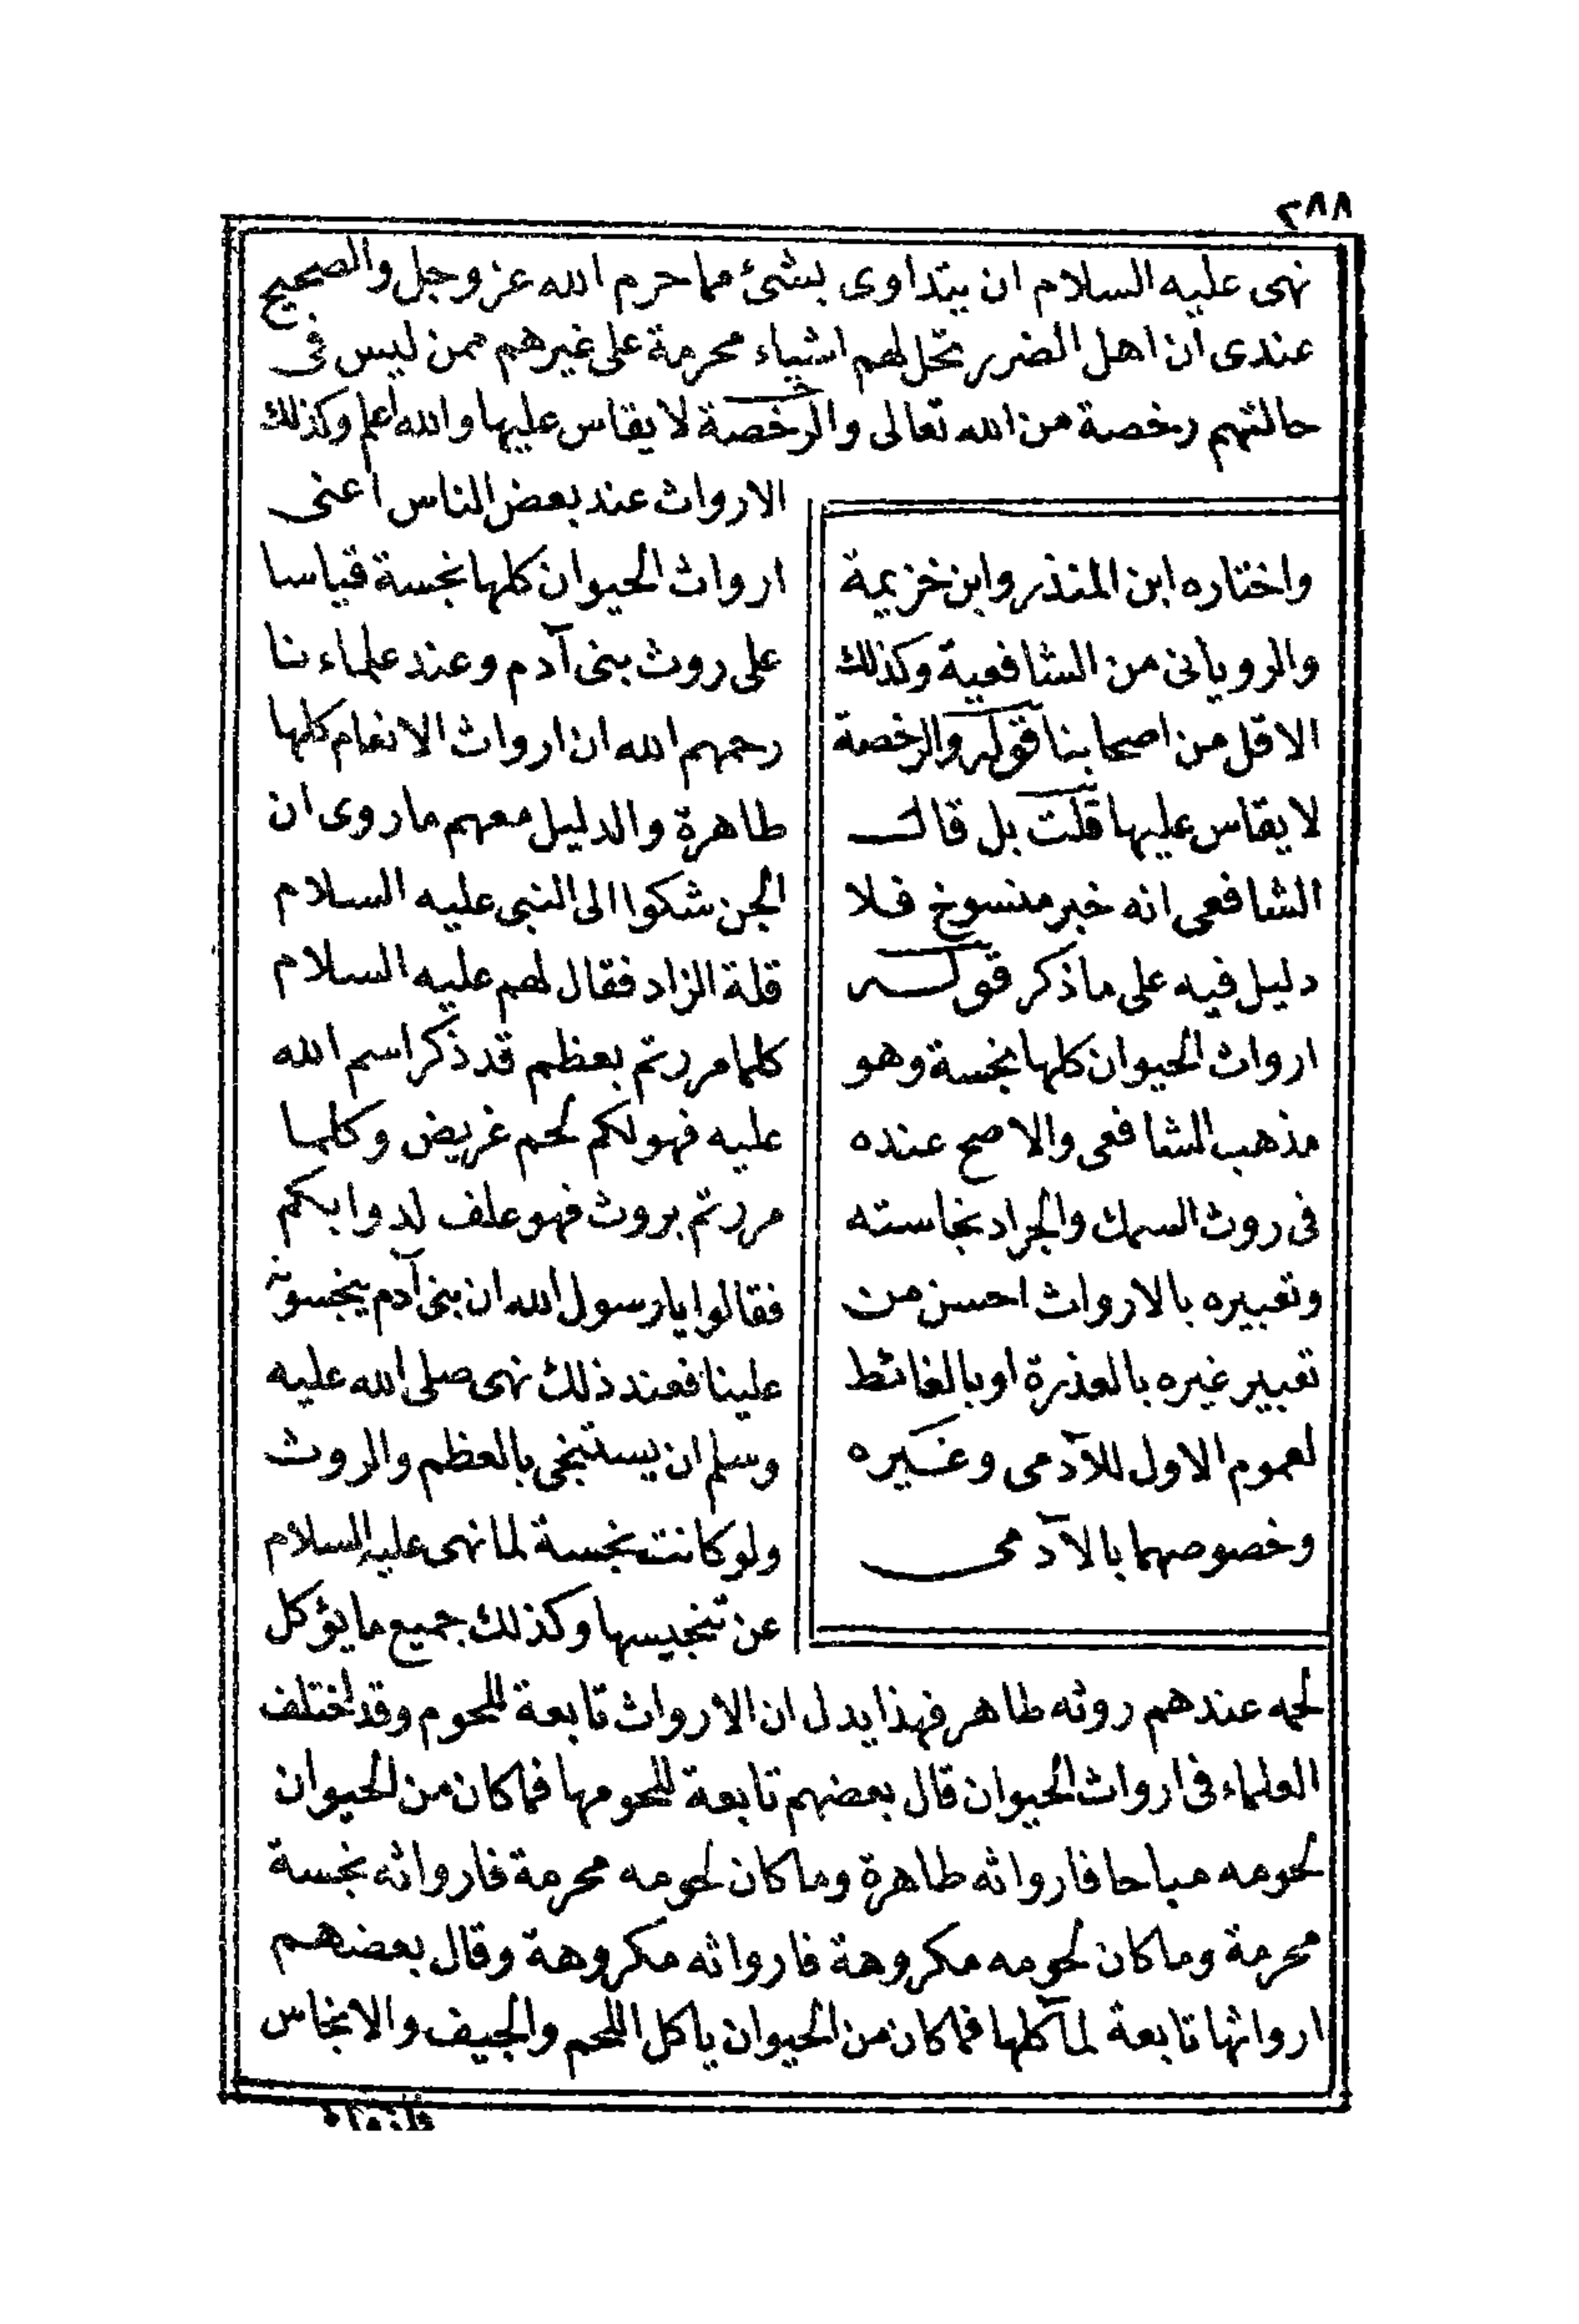 ٢٨٨
نهى عليه السلام ان يتداوى بشئ مما حرم الله عز وجل والصحيح
عندى ان اهل الضرر تحل لهم اشياء محرمة على غيرهم ممن ليس فى
حالتهم رخصة من الله تعالى والرخصة لا يقاس عليها والله اعلم وكذلك
الارواث عند بعض الناس اعنى
ارواث الحيوان كلها نجسة قياسا
على روث بنى آدم وعند علماءنا
رحمهم الله ان ارواث الانعام كلها
طاهرة والدليل معهم ماروى ان
الجن شكوا الى النبى عليه السلام
قلة الزاد فقال لهم عليه السلام
كلما مررتم بعظم قد ذكر اسم الله
عليه فهو لكم لحم غريض وكلما
مررتم بروث فهو علف لدوابكم
فقالوا يا رسول الله ان بنى آدم ينجسونه
علينا فعند ذلك نهى صلى الله عليه
وسلم ان يستنجى بالعظم والروث
ولو كانت نجسة لما نهى عليه السلام
عن تنجيسها وكذلك جميع ما يؤكل
لحمه عندهم روثه طاهر فهذا يدل ان الارواث تابعة للحوم وقد اختلف
العلماء فى ارواث الحيوان قال بعضهم تابعة للحومها فما كان من الحيوان
لحومه مباحا فارواثه طاهرة وما كان لحومه محرمة فارواثه نجسة
محرمة وما كان لحومه مكروهة فارواثه مكروهة وقال بعضهم
ارواثها تابعة لمآكلها فما كان من الحيوان ياكل اللحم والجيف والانجاس
واختاره ابن المنذر وابن خزيمة
والرويانى من الشافعية وكذلك
الاقل من اصحابنا قوله والرخصة
لا يقاس عليها قلت بل قال
الشافعى انه خبر منسوخ فلا
دليل فيه على ما ذكر قوله
ارواث الحيوان كلها نجسة وهو
مذهب الشافعى والاصح عنده
فى روث السمك والجراد نجاسته
وتعبيره بالارواث احسن من
تعبير غيره بالعذرة او بالغائط
لعموم الاول للآدمى وغيره
وخصوصهما بالآدمى